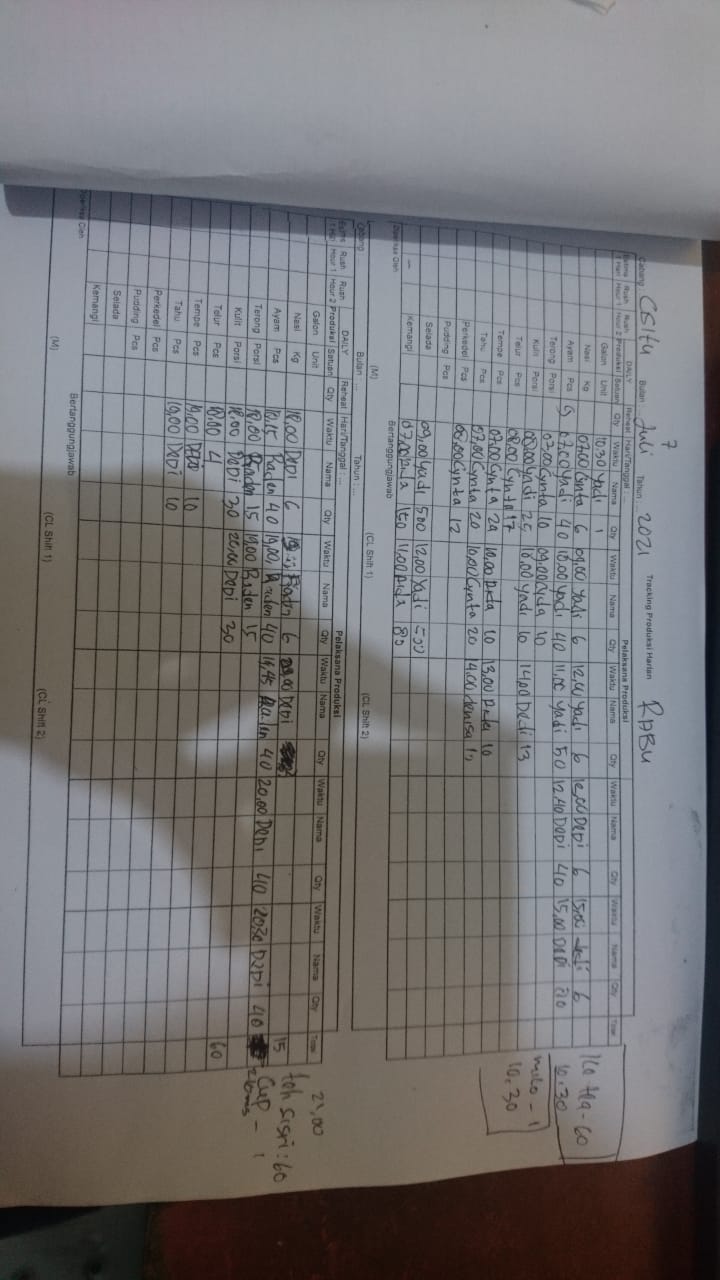 7
Cabang : Csitu Bulan : Juli Tahun : 2021 Tracking Produksi Harian Rabu
Pelaksana Produksi
Rush Hour 1 Rush Hour 2 DAILY Produksi Satuan Reheat Hari/Tanggal
Qty Waktu Nama Qty Waktu Nama Qty Waktu Nama Qty Waktu Nama Qty Waktu Nama Qty Total
Galon Unit 10.30 Yadi 1
Nasi Kg 07.00 Cynta 6 09.00 Yadi 6 12.00 Yadi 6 Depi 6 15.00 6
Ayam Pcs 9 07.00 Yadi 40 10.00 Yadi 40 11.00 Yadi 50 12.40 Depi 40 15.00 Depi
Terong Porsi 07.00 Cynta 10 09.00 Cynta 10
Kulit Porsi 08.00 Yadi 25 10.00 Yadi 10 14.00 Dedi 13
Telur Pcs 08.00 Cynta 17
Tempe Pcs 07.00 Cynta 10.00 10 13.00 10
Tahu Pcs 07.00 Cynta 20 10.00 Cynta 20 14.00
Perkedel Pcs 06.00 Cynta 12
Pudding Pcs
Selada 09.00 Yadi 500 12.00 Yadi 500
Kemangi 07.00 150 11.00
Diperiksa Oleh Bertanggungjawab
(M) (CL Shift 1) (CL Shift 2)
Ice tea - 60
10.30
milo - 1
10.30
Cabang Bulan : Tahun :
Pelaksana Produksi
Rush Hour 1 Rush Hour 2 DAILY Produksi Satuan Reheat Hari/Tanggal :
Qty Waktu Nama Qty Waktu Nama Qty Waktu Nama Qty Waktu Nama Qty Waktu Nama Qty Total
Galon Unit
Nasi Kg 18.00 Depi 6 Raden 6 Depi 15
Ayam Pcs Raden 40 19.00 Raden 40 19.45 40 20.00 Depi 40 2030 Depi 40
Terong Porsi 18.00 Raden 15 19.00 Raden 15
Kulit Porsi 18.00 Depi 30 20.00 Depi 30 60
Telur Pcs 18.00 4
Tempe Pcs 19.00 Depi 10
Tahu Pcs 19.00 Depi 10
Perkedel Pcs
Pudding Pcs
Selada
Kemangi
Diperiksa Oleh Bertanggungjawab
(M) (CL Shift 1) (CL Shift 2)
21.00
teh sisri : 60
Cup - 1